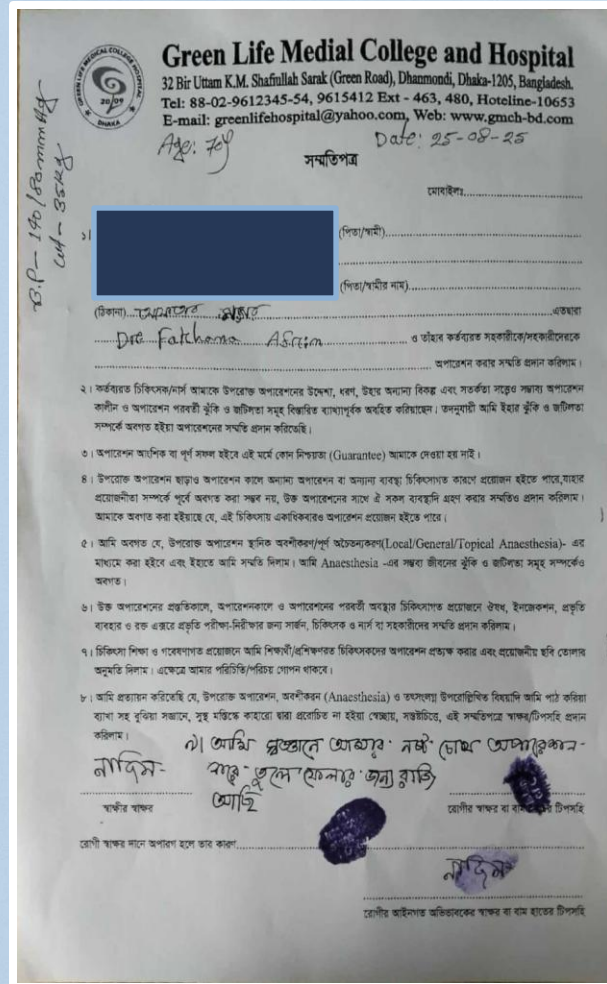 GREEN LIFE MEDICAL COLLEGE HOSPITAL
20/09
DHAKA
Green Life Medial College and Hospital
32 Bir Uttam K.M. Shafiullah Sarak (Green Road), Dhanmondi, Dhaka-1205, Bangladesh.
Tel: 88-02-9612345-54, 9615412 Ext - 463, 480, Hoteline-10653
E-mail: greenlifehospital@yahoo.com, Web: www.gmch-bd.com
Age: 70y
Date: 25-08-25
B.P - 190/80mmHg
wt - 35kg
সম্মতিপত্র
মোবাইলঃ
১। (পিতা/স্বামী)
(পিতা/স্বামীর নাম)
(ঠিকানা) এতদ্বারা
Dre Fatchama ও তাঁহার কর্তব্যরত সহকারীকে/সহকারীদেরকে
অপারেশন করার সম্মতি প্রদান করিলাম।
২। কর্তব্যরত চিকিৎসক/নার্স আমাকে উপরোক্ত অপারেশনের উদ্দেশ্য, ধরণ, উহার অন্যান্য বিকল্প এবং সতর্কতা সত্ত্বেও সম্ভাব্য অপারেশন
কালীন ও অপারেশন পরবর্তী ঝুঁকি ও জটিলতা সমূহ বিস্তারিত ব্যাখ্যাপূর্বক অবহিত করিয়াছেন। তদনুযায়ী আমি ইহার ঝুঁকি ও জটিলতা
সম্পর্কে অবগত হইয়া অপারেশনের সম্মতি প্রদান করিতেছি।
৩। অপারেশন আংশিক বা পূর্ণ সফল হইবে এই মর্মে কোন নিশ্চয়তা (Guarantee) আমাকে দেওয়া হয় নাই।
৪। উপরোক্ত অপারেশন ছাড়াও অপারেশন কালে অন্যান্য অপারেশন বা অন্যান্য ব্যবস্থা চিকিৎসাগত কারণে প্রয়োজন হইতে পারে,যাহার
প্রয়োজনীতা সম্পর্কে পূর্বে অবগত করা সম্ভব নয়, উক্ত অপারেশনের সাথে ঐ সকল ব্যবস্থাদি গ্রহণ করার সম্মতিও প্রদান করিলাম।
আমাকে অবগত করা হইয়াছে যে, এই চিকিৎসায় একাধিকবারও অপারেশন প্রয়োজন হইতে পারে।
৫। আমি অবগত যে, উপরোক্ত অপারেশন স্থানিক অবশীকরণ/পূর্ণ অচৈতন্যকরণ(Local/General/Topical Anaesthesia)- এর
মাধ্যমে করা হইবে এবং ইহাতে আমি সম্মতি দিলাম। আমি Anaesthesia -এর সম্ভব্য জীবনের ঝুঁকি ও জটিলতা সমূহ সম্পর্কেও
অবগত।
৬। উক্ত অপারেশনের প্রস্তুতিকালে, অপারেশনকালে ও অপারেশনের পরবর্তী অবস্থার চিকিৎসাগত প্রয়োজনে ঔষধ, ইনজেকশন, প্রভৃতি
ব্যবহার ও রক্ত এক্সরে প্রভৃতি পরীক্ষা-নিরীক্ষার জন্য সার্জন, চিকিৎসক ও নার্স বা সহকারীদের সম্মতি প্রদান করিলাম।
৭। চিকিৎসা শিক্ষা ও গবেষণাগত প্রয়োজনে আমি শিক্ষার্থী/প্রশিক্ষণরত চিকিৎসকদের অপারেশন প্রত্যক্ষ করার এবং প্রয়োজনীয় ছবি তোলার
অনুমতি দিলাম। এক্ষেত্রে আমার পরিচিতি/পরিচয় গোপন থাকবে।
৮। আমি প্রত্যয়ন করিতেছি যে, উপরোক্ত অপারেশন, অবশীকরন (Anaesthesia) ও তৎসংলগ্ন উপরোল্লিখিত বিষয়াদি আমি পাঠ করিয়া
ব্যাখা সহ বুঝিয়া সজ্ঞানে, সুস্থ মস্তিষ্কে কাহারো দ্বারা প্ররোচিত না হইয়া স্বেচ্ছায়, সন্তষ্টচিত্তে, এই সম্মতিপত্রে স্বাক্ষর/টিপসহি প্রদান
করিলাম।
৯। আমি স্বজ্ঞানে আমার নষ্ট চোখ অপারেশন-
তুলে ফেলার জন্য রাজি
আছি
নাদিম
স্বাক্ষীর স্বাক্ষর
রোগীর স্বাক্ষর বা বাম টিপসহি
রোগী স্বাক্ষর দানে অপারগ হলে তার কারণ
নাদিম
রোগীর আইনগত অভিভাবকের স্বাক্ষর বা বাম হাতের টিপসহি